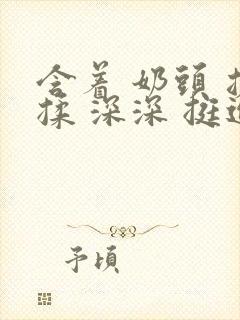 含着 奶頭
揉 深深 挺
予頃